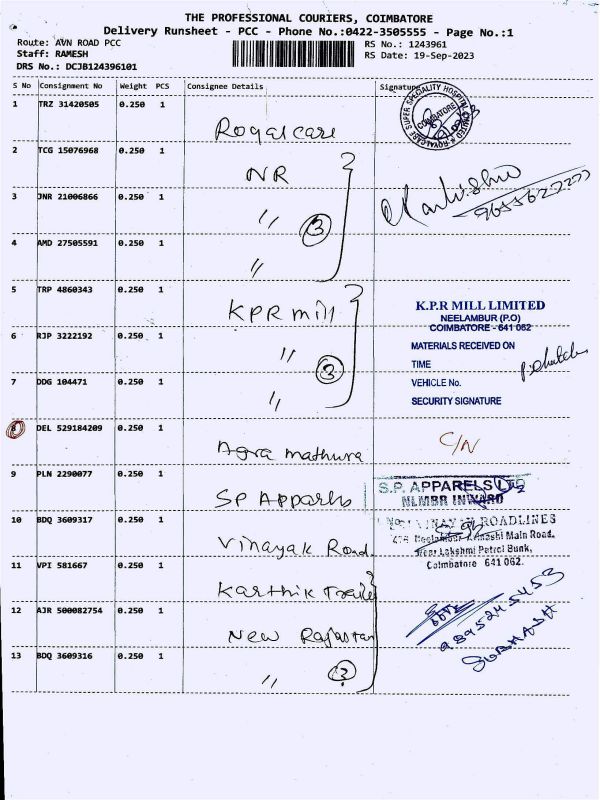 THE PROFESSIONAL COURIERS, COIMBATORE
Delivery Runsheet - PCC - Phone No.:0422-3505555 - Page No.:1
Route: AVN ROAD PCC
Staff: RAMESH
DRS No.: DCJB124396101
RS No.: 1243961
RS Date: 19-Sep-2023
S No Consignment No Weight PCS Consignee Details Signature
1 TRZ 31420505 0.250 1 Royalcare
ROYALCARE SUPER SPECIALITY HOSPITAL LIMITED
COIMBATORE
2 TCG 15076968 0.250 1 NR
3 JNR 21006866 0.250 1 〃 3
4 AMD 27505591 0.250 1 〃
5 TRP 4860343 0.250 1 KPR mill
K.P.R MILL LIMITED
NEELAMBUR (P.O)
COIMBATORE - 641 062
6 RJP 3222192 0.250 1 〃 3
MATERIALS RECEIVED ON
TIME
7 DDG 104471 0.250 1 〃
VEHICLE No.
SECURITY SIGNATURE
8 DEL 529184209 0.250 1 Agra mathura C/N
9 PLN 2290077 0.250 1 SP Apparels
S.P. APPARELS LTD
NLMBR INWARD
10 BDQ 3609317 0.250 1 Vinayak Road.
VINAYAK ROADLINES
Avinashi Main Road,
Near Lakshmi Petrol Bunk,
Coimbatore 641 062.
11 VPI 581667 0.250 1 Karthik
12 AJR 500082754 0.250 1 New Rajastan
9895245453
SUBHASH
13 BDQ 3609316 0.250 1 〃